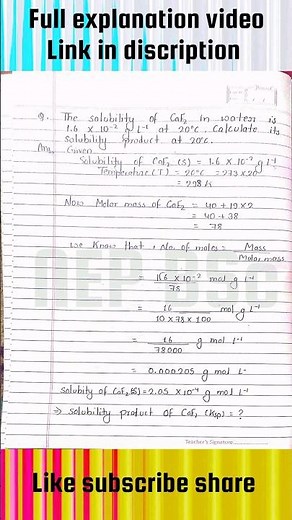 Full explanation video
Link in discription
Q. The solubility of CaF₂ in water is
1.6 × 10⁻² g L⁻¹ at 20°C. Calculate its
solubility product at 20°C.
Ans. Given
Solubility of CaF₂ (S) = 1.6 × 10⁻² g L⁻¹
Temperature (T) = 20°C = 273 + 20
= 298 K
Now Molar mass of CaF₂ = 40 + 19 × 2
= 40 + 38
= 78
we know that, No. of moles = Mass
Molar mass
= 1.6 × 10⁻² mol g L⁻¹
78
= 16 mol g L⁻¹
10 × 78 × 100
= 16 g mol L⁻¹
78000
= 0.000205 g mol L⁻
solubity of CaF₂(s) = 2.05 × 10⁻⁴ g mol L⁻¹
⇒ solubility product of CaF₂ (Ksp) = ?
Teacher's Signature
NEP BSC
Like subscribe share